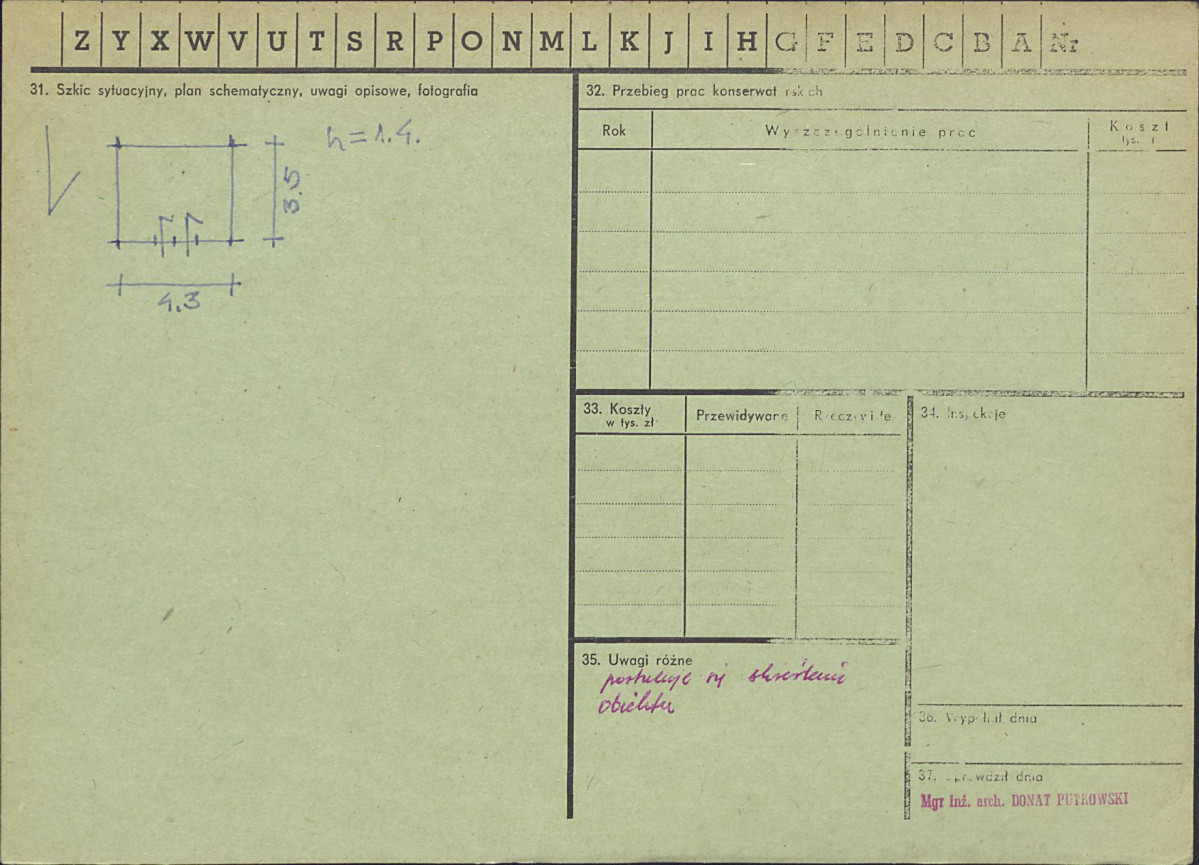 Z Y X W V U T S R P O N M L K J I H G F E D C B A Nr
31. Szkic sytuacyjny, plan schematyczny, uwagi opisowe, fotografia
h = 1.4.
3.5
4.3
32. Przebieg prac konserwatorskich
Rok Wyszczególnienie prac Koszt
tys. zł
33. Koszty Przewidywane Rzeczywiste
w tys. zł
34. Inspekcje
35. Uwagi różne
postuluje się skreślenie
obiektu
36. Wypełnił dnia
37. Sprawdził dnia
Mgr inż. arch. DONAT PUTKOWSKI